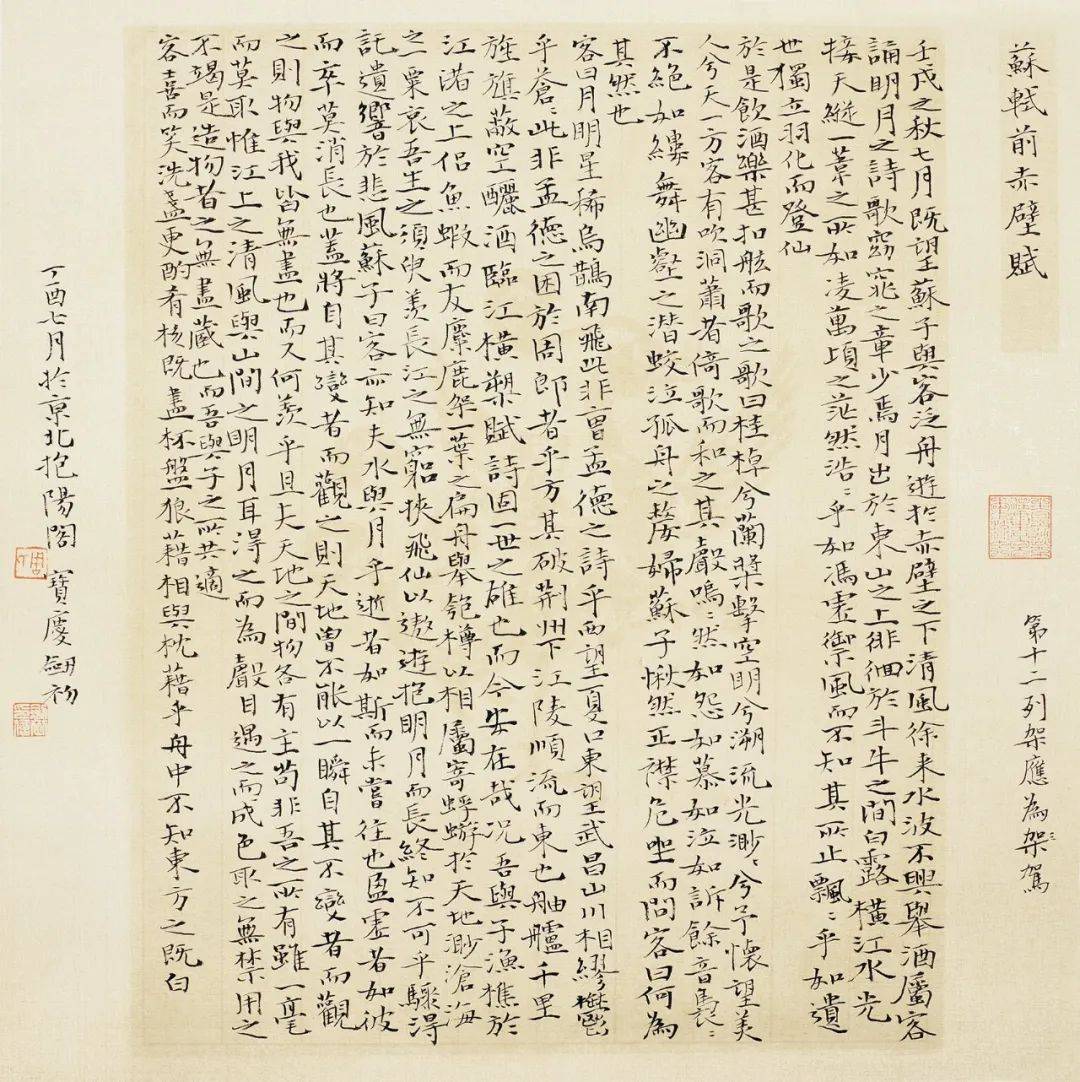 蘇軾前赤壁賦
第十二列架應為架駕
壬戌之秋七月既望蘇子與客泛舟遊於赤壁之下清風徐来水波不興舉酒屬客
誦明月之詩歌窈窕之章少焉月出於東山之上徘徊於斗牛之間白露橫江水光
接天縱一葦之所如凌萬頃之茫然浩〻乎如馮虛御風而不知其所止飄〻乎如遺
世獨立羽化而登仙
於是飲酒樂甚扣舷而歌之歌曰桂棹兮蘭槳擊空明兮溯流光渺〻兮予懷望美
人兮天一方客有吹洞蕭者倚歌而和之其聲嗚〻然如怨如慕如泣如訴餘音裊〻
不絕如縷舞幽壑之潛蛟泣孤舟之嫠婦蘇子愀然正襟危坐而問客曰何為
其然也
客曰月明星稀烏鵲南飛此非曹孟德之詩乎西望夏口東望武昌山川相繆鬱
乎蒼〻此非孟德之困於周郎者乎方其破荆州下江陵順流而東也舳艫千里
旌旗蔽空釃酒臨江橫槊賦詩固一世之雄也而今安在哉況吾與子漁樵於
江渚之上侶魚蝦而友麋鹿架一葉之扁舟舉匏樽以相屬寄蜉蝣於天地渺滄海
之一粟哀吾生之須臾羨長江之無窮挾飛仙以遨遊抱明月而長終知不可乎驟得
託遺響於悲風蘇子曰客亦知夫水與月乎逝者如斯而未嘗往也盈虛者如彼
而卒莫消長也蓋將自其變者而觀之則天地曾不能以一瞬自其不變者而觀
之則物與我皆無盡也而又何羨乎且夫天地之間物各有主苟非吾之所有雖一毫
而莫取惟江上之清風與山間之明月耳得之而為聲目遇之而成色取之無禁用之
不竭是造物者之無盡藏也而吾與子之所共適
客喜而笑洗盞更酌肴核既盡杯盤狼藉相與枕藉乎舟中不知東方之既白
丁酉七月於京北抱陽閣寶慶劒初